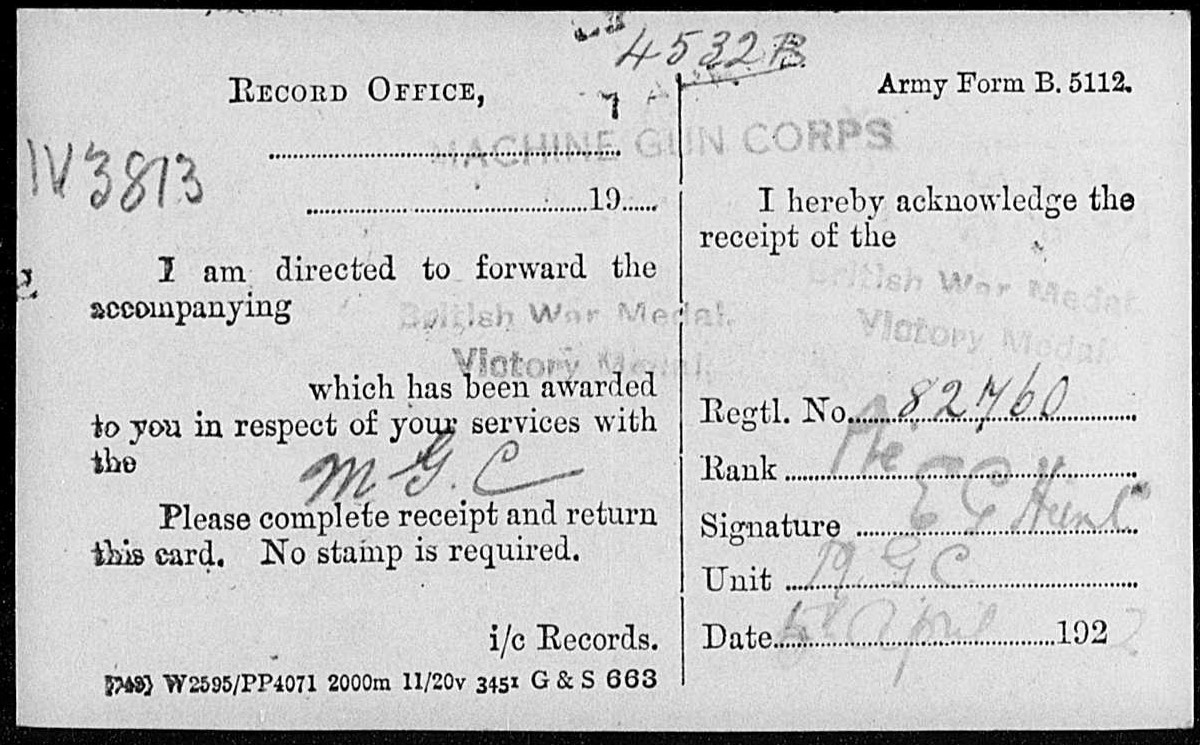 4532B
RECORD OFFICE,
MACHINE GUN CORPS
IV3813
19
I am directed to forward the
accompanying
British War Medal.
Victory Medal.
which has been awarded
to you in respect of your services with
the
M. G. C
Please complete receipt and return
this card. No stamp is required.
i/c Records.
W2595/PP4071 2000m 11/20v 3451 G & S 663
Army Form B. 5112.
I hereby acknowledge the
receipt of the
British War Medal.
Victory Medal
Regtl. No. 82760
Rank Pte
Signature E G
Unit M. G C.
Date 5th April 1922